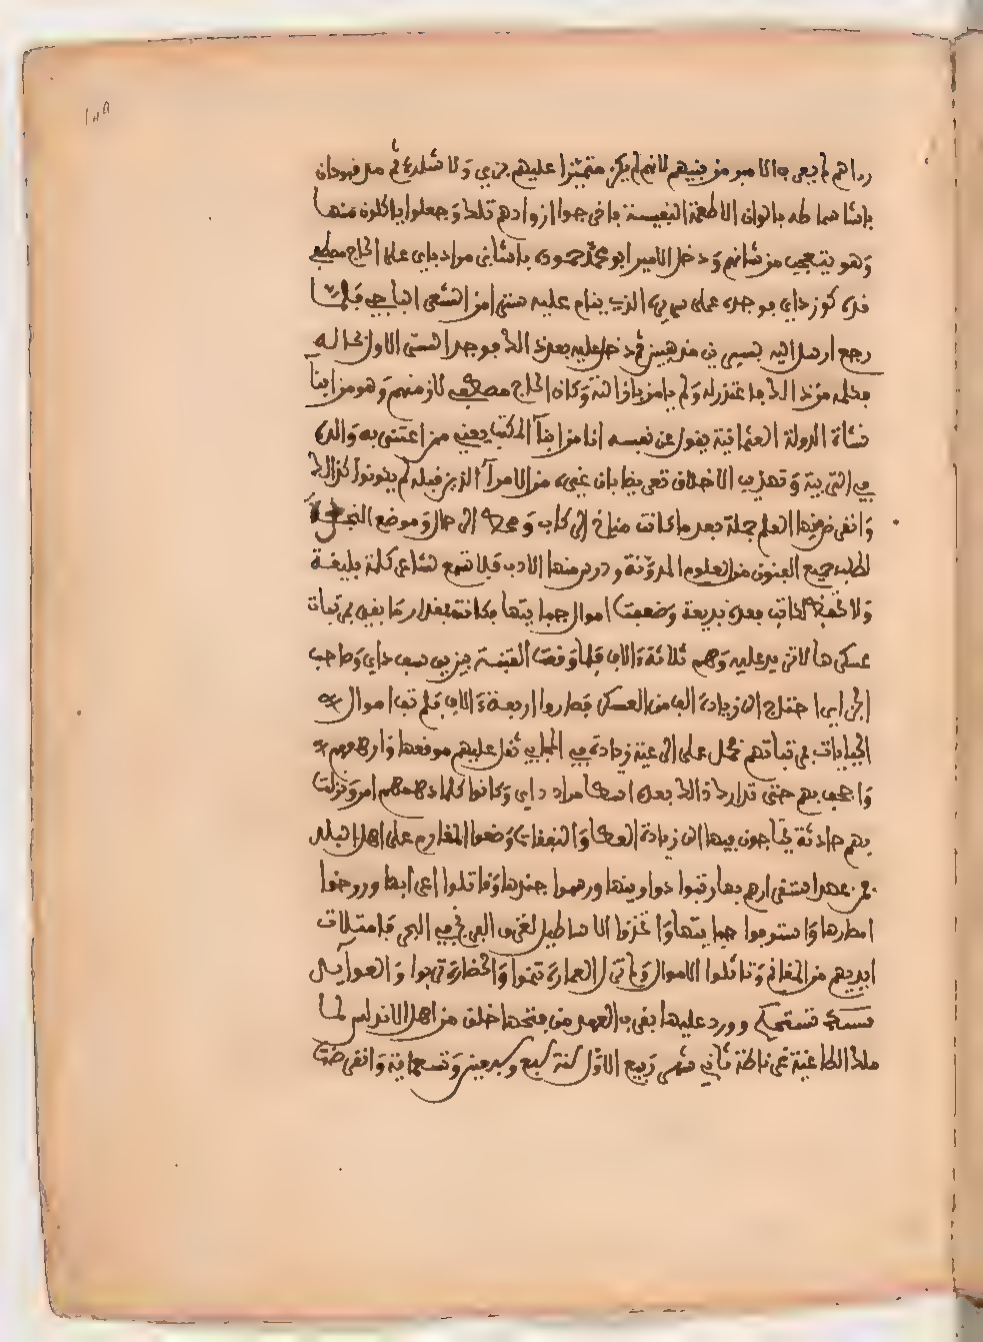 رداهم لم يعرف الامير من بينهم لانهم لم يكن متميزا عليهم بزي ولا شارة ثم مدهم فهودان
باشا سماطه بالوان الاطعمة النفيسة فاخرجوا ازوادهم تلك وجعلوا ياكلون منها
وهو يتعجب من شانهم ودخل الامير ابو محمد حمودة باشا بن مراد باي على الحاج مصطفى
قره كوز داي فوجده على سريره الذي ينام عليه ستر من الشعر فلما
رجع ارسل اليه بسرير فدخل عليه بعد ذلك فوجد الستر الاول بحاله
فكلمه في ذلك فاعتذر له ولم وكان الحاج مصطفى لاز منهم وهو من ابناء
نشاة الدولة العثمانية يقول عن نفسه انا من ابناء المكتب يعني ممن اعتنى به والده
في التربية وتهذيب الاخلاق تعريضا بان غيره من الامراء الذين قبله لم يكونوا كذلك
وانقرض منها العلم جملة بعد ما كانت مناخ كل ركاب ومحط الرحال وموضع النجعة
لطلب جميع الفنون من العلوم المدونة ودرس منها الادب فلا تسمع لشاعر كلمة بليغة
ولا تحفظ لكاتب بعده بديعة وضعفت اموال جبايتها فكانت بمقدار ما يفي بمرتبات
عسكرها لا تزيد عليه وهم ثلاثة ءالاف فلما وقعت الفتنة بين يوسف داي وصاحب
الجزاير احتاج الى زيادة الف من العسكر فصاروا اربعة ءالاف فلم تف اموال
الجبايات بمرتباتهم فحمل على الرعية زيادة في المجابي ثقل عليهم موقعها وارهقهم
واجحف بهم حتى تدارك ذلك بعده اسطا مراد داي وكانوا كلما دهمهم امر ونزلت
بهم حادثة يحتاجون فيها الى زيادة العطا والنفقات وضعوا المغارم على اهل البلد
فمن عهد استقرارهم بها رتبوا دواوينها ورسموا جندها وقاتلوا اعرابها وروضوا
امصارها واستوفوا جبايتها واتخذوا الاساطيل لغزو الفرنج في البحر فامتلات
ايديهم من المغانم وتاثلوا الاموال ولم تزل العمارة تنموا والحضارة تربوا والعوايد
تستحكم وورد عليها بقرب العهد من فتحها خلق من اهل الاندلس لما
ملك الطاغية غرناطة ثاني شهر ربيع الاول سنة سبع وسبعين وتسعماية وانقرضت